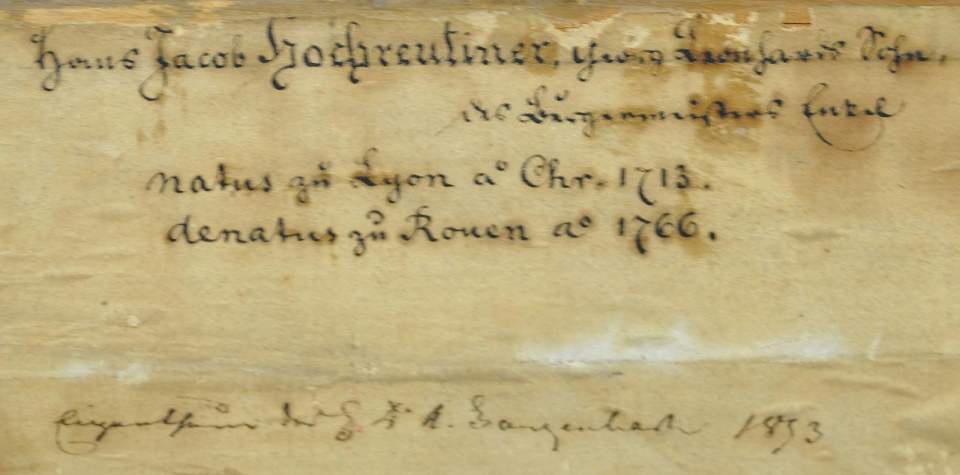 Hans Jacob Hochreutiner, Georg Leonhards Sohn.
des Bürgermeisters Enkel
natus zů Lyon a° Chr. 1713.
denatus zů Rouen a° 1766.
Eigenthum der A. 1853